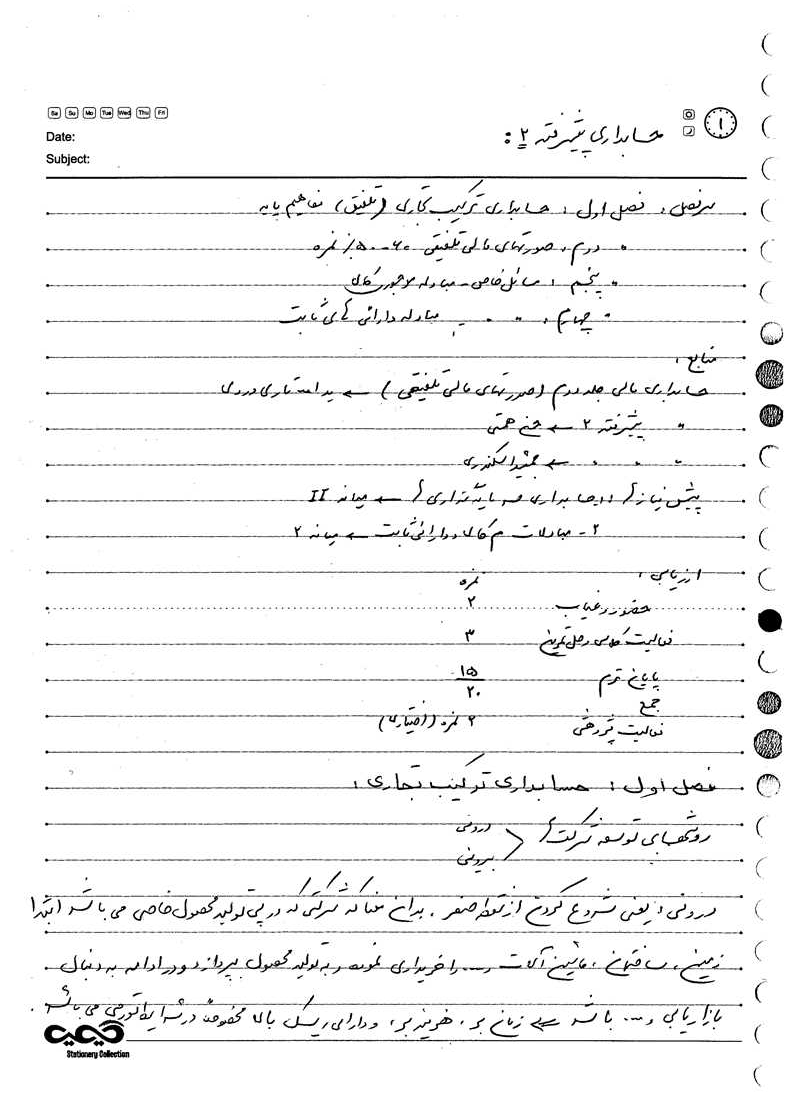 Sa Su Mo Tue Wed Thu Fri
Date:
Subject:
۱
حسابداری پیشرفته ۲ :
سرفصل : فصل اول : حسابداری ترکیب تجاری (تلفیق) مفاهیم پایه
" دوم : صورتهای مالی تلفیقی ۶۰-۵۰٪ نمره
" پنجم : مسائل خاص - مبادله موجودی کالا
" چهارم : " " - مبادله دارائی های ثابت
منابع :
حسابداری مالی جلد دوم (صورتهای مالی تلفیقی) ← یداله تاری وردی
" پیشرفته ۲ ← همتی
" " " ← جمشید اسکندری
پیش نیاز : ۱- حسابداری سرمایه گذاری ← میانه II
۲- مبادلات م کالا و دارائی ثابت ← میانه ۲
ارزیابی : نمره
حضور و غیاب ۲
فعالیت کلاسی و حل تمرین ۳
پایان ترم ۱۵
جمع ۲۰
فعالیت پژوهشی ۲ نمره (اختیاری)
فصل اول : حسابداری ترکیب تجاری :
روشهای توسعه شرکت درونی
بیرونی
درونی : یعنی شروع کردن از نقطه صفر . بدان معنا که شرکتی که در پی تولید محصول خاصی می باشد ابتدا
زمین ، ساختمان ، ماشین آلات و ... را خریداری نموده و به تولید محصول بپردازد و در ادامه به دنبال
بازاریابی و ... باشد ← زمان بر ، هزینه بر ، و دارای ریسک بالا مخصوصاً در شرایط تورمی می باشد .
Stationery Collection